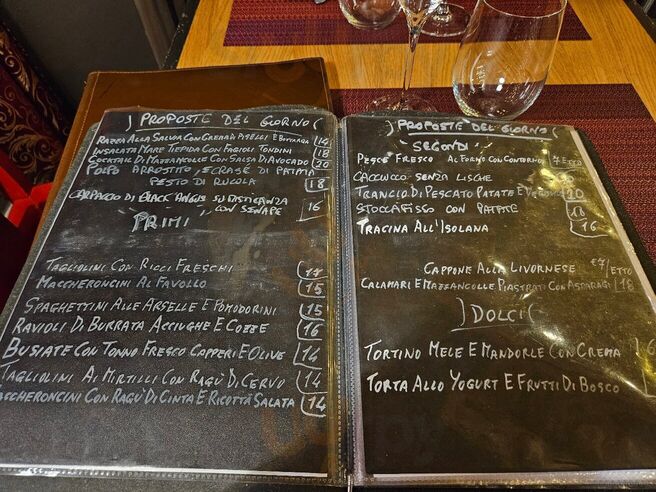 PROPOSTE DEL GIORNO
RAZZA ALLA SALVIA CON CREMA DI PISELLI E BOTTARGA 14
INSALATA MARE TIEPIDA CON FAGIOLI TONDINI 18
COCKTAIL DI MAZZANCOLLE CON SALSA DI AVOCADO 20
POLPO ARROSTITO, ECRASÈ DI PATATA
PESTO DI RUCOLA 18
CARPACCIO DI BLACK ANGUS SU MISTICANZA
CON SENAPE 16
"PRIMI"
TAGLIOLINI CON RICCI FRESCHI 17
MACCHERONCINI AL FAVOLLO 15
SPAGHETTINI ALLE ARSELLE E POMODORINI 15
RAVIOLI DI BURRATA ACCIUGHE E COZZE 16
BUSIATE CON TONNO FRESCO CAPPERI E OLIVE 14
TAGLIOLINI AI MIRTILLI CON RAGÙ DI CERVO 14
ACCHERONCINI CON RAGÙ DI CINTA E RICOTTA SALATA 14
PROPOSTE DEL GIORNO
"SECONDI"
PESCE FRESCO AL FORNO CON CONTORNO 7 ETTO
CACCIUCCO SENZA LISCHE
TRANCIO DI PESCATO PATATE E 20
STOCCAFISSO CON PATATE 18
TRACINA ALL'ISOLANA 16
CAPPONE ALLA LIVORNESE €7/ETTO
CALAMARI E MAZZANCOLLE PIASTRATI CON ASPARAGI 18
DOLCI
TORTINO MELE E MANDORLE CON CREMA 6
TORTA ALLO YOGURT E FRUTTI DI BOSCO